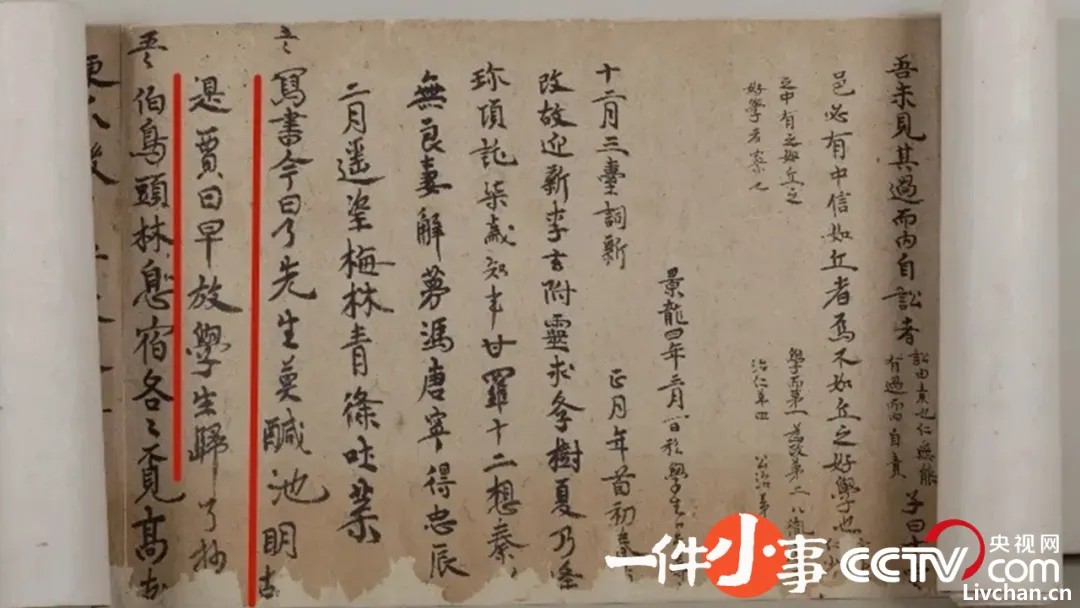 吾未見其過而內自訟者
訟由責也仁無能
有過而內自責
子曰十
邑必有中信如丘者焉不如丘之好學也
之中有之如丘之
好學者寡也
學而第一 為政第二 八佾
治仁第四 公冶第
景龍四年三月一日私學生
十二月三臺詞新
正月年首初春
改故迎新李玄附靈求學樹夏乃逢
珎項託柒歲知事甘羅十二想秦
無良妻解夢馮唐寧得忠辰
二月遥望梅林青條吐葉
寫書今日了先生莫醎池明
是賈日早放學生歸
了抄
伯鳥頭林息宿各々覓高
一件小事
CCTV.com
央视网
Livchan.cn